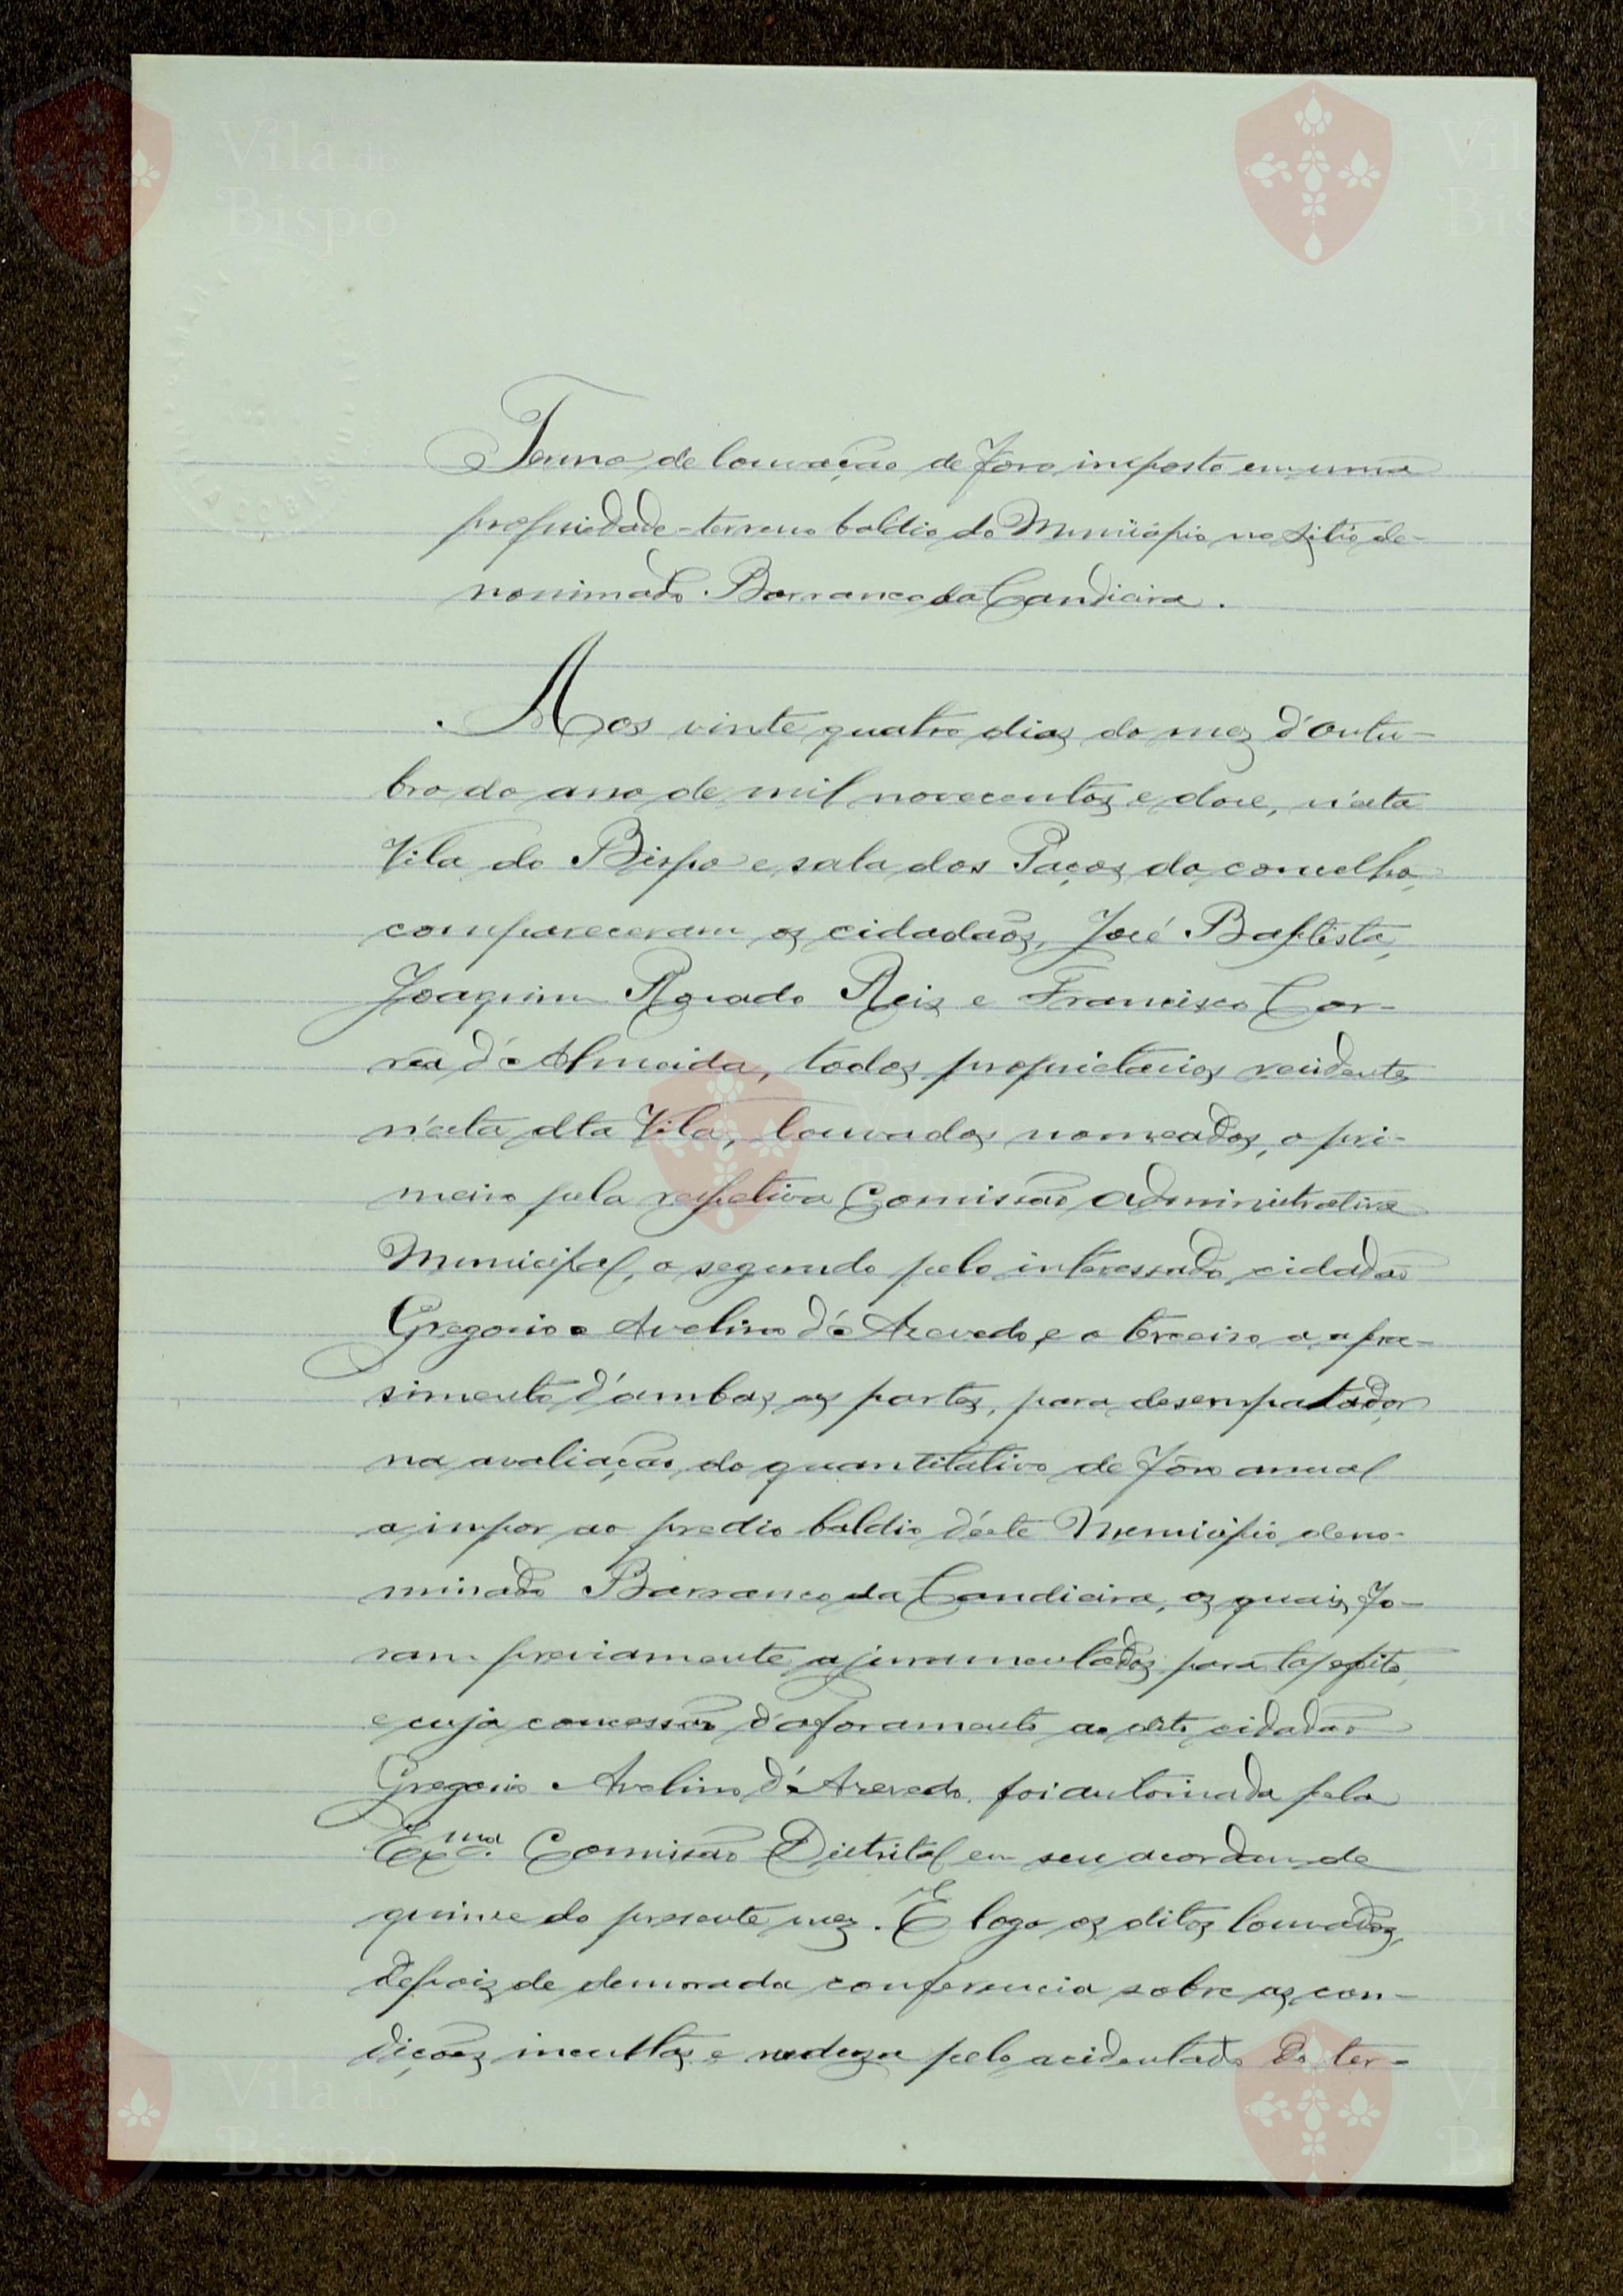 Termo de louvação de fôro imposto em uma
propriedade-terreno baldio do Municipio no sitio de-
nominado Barranco da Candieira.
Aos vinte quatro dias do mez d'outu-
bro do ano de mil novecentos e doze, n'esta
Vila do Bispo e sala dos Paços do concelho,
compareceram os cidadãos, José Baptista,
Joaquim Reis e Francisco Cor-
rea d'Almeida, todos proprietarios residentes
n'esta dta Vila, louvados nomeados, o pri-
meiro pela respetiva Comissão Administrativa
Municipal, o segundo pelo interessado cidadão
Gregorio Avelino d'Azevedo, e o terceiro a apra-
simento d'ambas as partes, para desempatador
na avaliação do quantitativo de fôro anual
a impor ao predio baldio d'este Municipio deno-
minado Barranco da Candieira, os quais fo-
ram previamente ajuramentados para tal efeito,
e cuja concessão d'aforamento ao dito cidadão
Gregorio Avelino d'Azevedo, foi autorisada pela
Exc.ma Comissão Distrital em seu acordam de
quinze do presente mez. E logo os ditos louvados,
depois de demorada conferencia sobre as con-
dições incultas e rudeza pelo acidentado do ter-
Vila do
Bispo